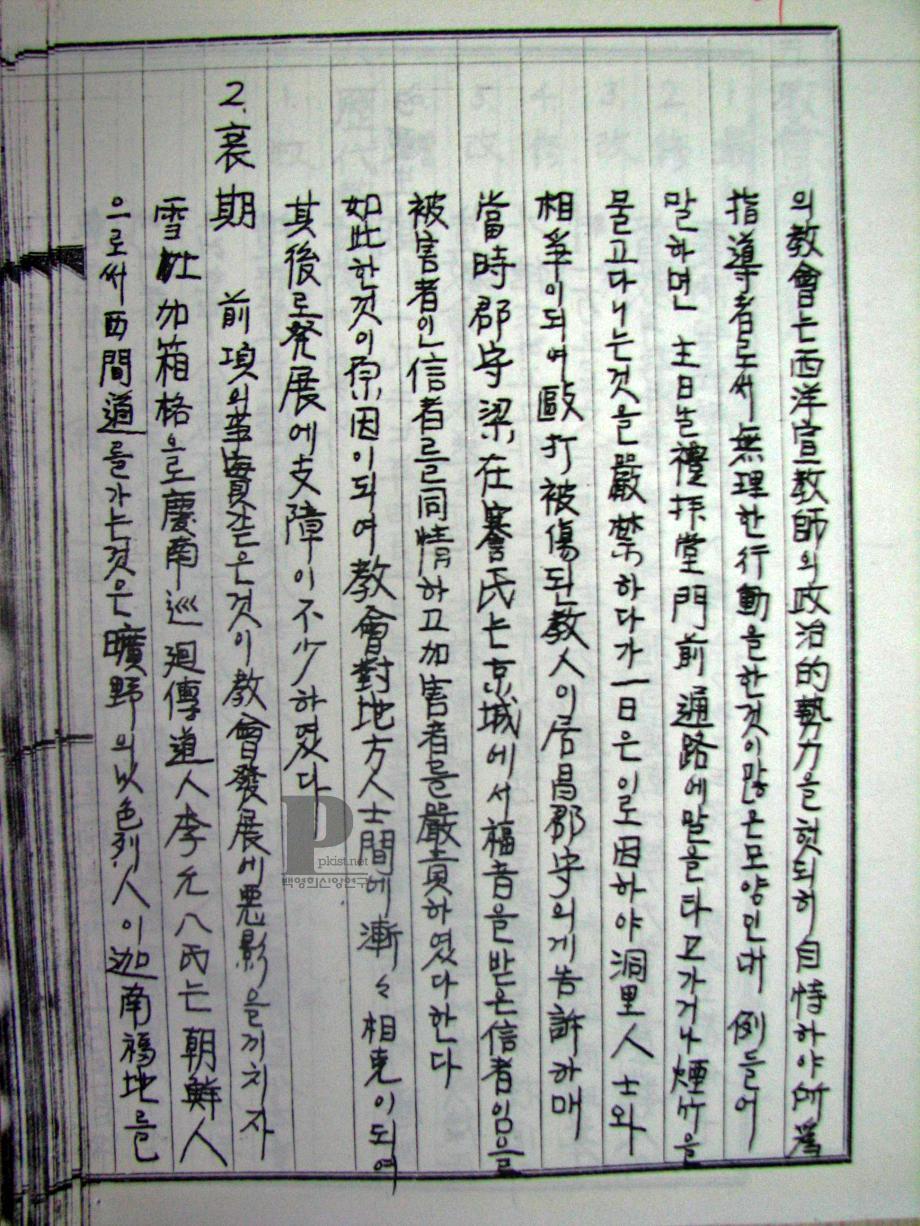 의敎會는西洋宣敎師의政治的勢力을헛되히自恃하야所爲
指導者로써無理한行動을한것이많은모양인대 例들어
말하면 主日날禮拜堂門前通路에말을타고가거나煙竹을
물고다니는것을嚴禁하다가一日은일로因하야洞里人士와
相爭이되여毆打被傷되敎人이居昌郡守의게告訴하매
當時郡守梁在謇氏는京城에서福音을받은信者임으로
被害者인信者를同情하고加害者를嚴責하였다한다
如此한것이原因이되여敎會對地方人士間에漸々相克이되여
其後로発展에支障이不少하였다
2.衰期 前項의事實같은것이敎會發展에悪影을끼치자
雪 加箱格으로慶南巡廻傳道人李允八氏는朝鮮人
으로써西間道를가는것은曠野의以色列人이迦南福地를
pkist.net
백영희신앙연구